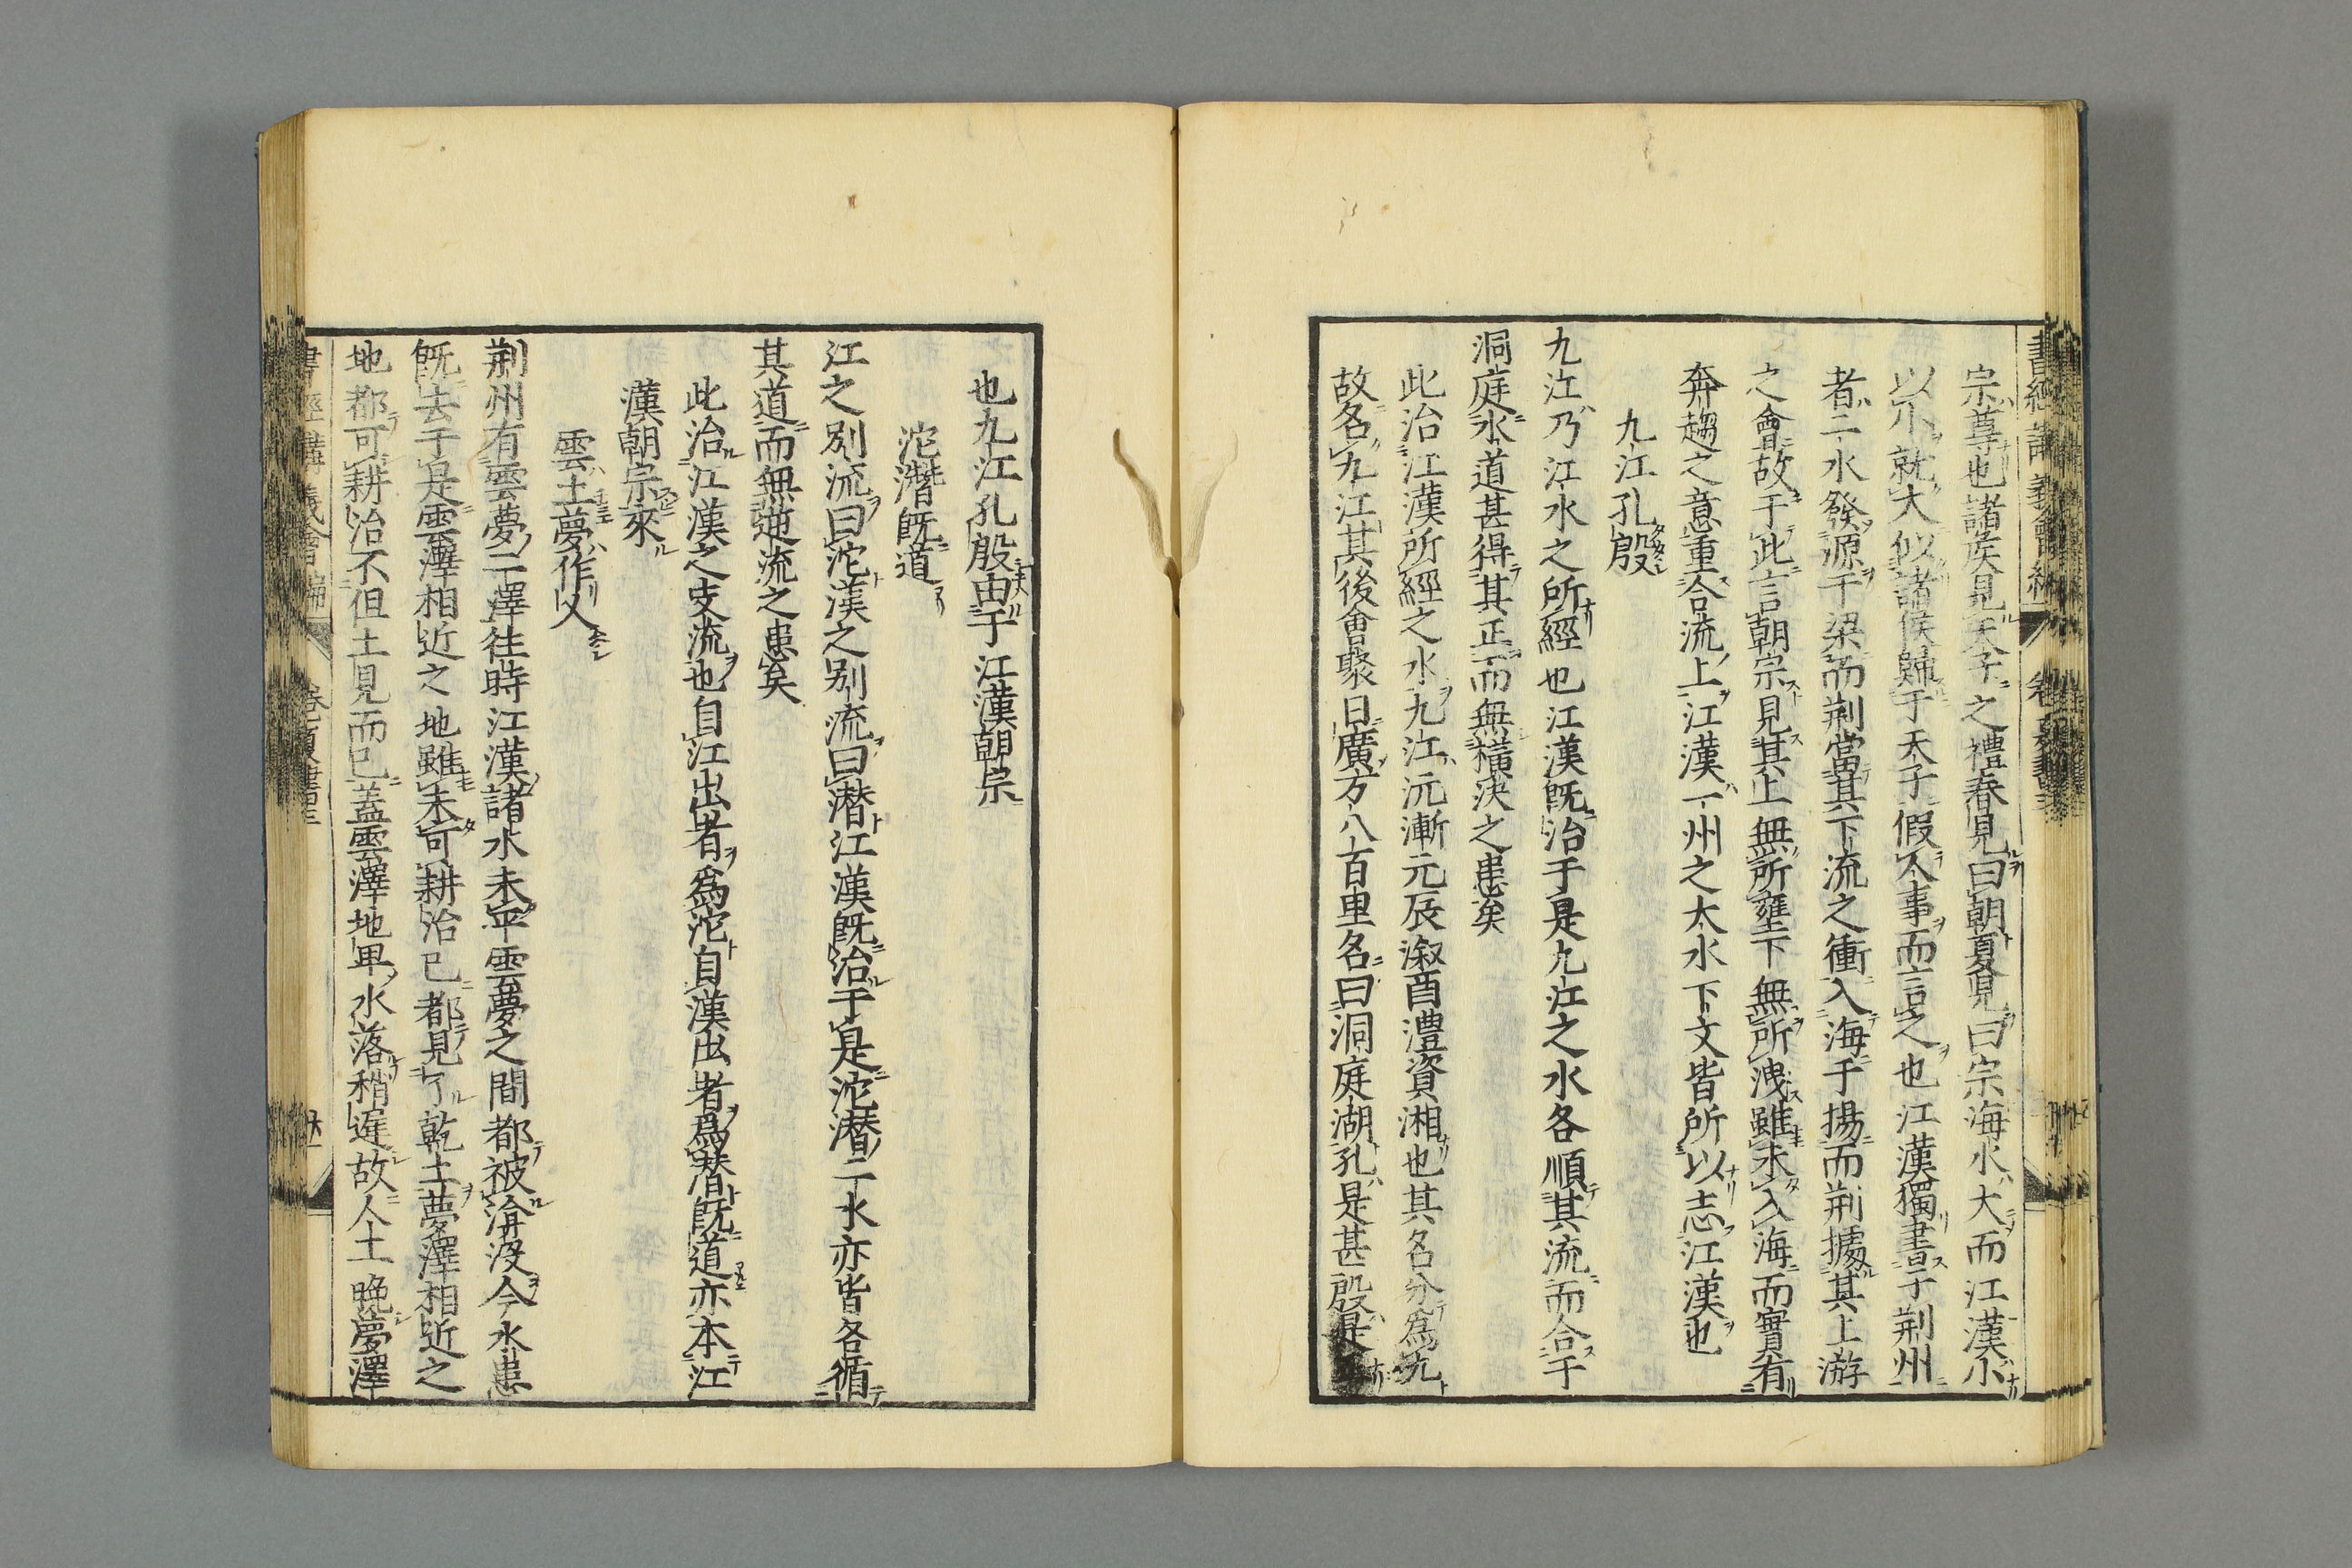 書經講義會編
宗尊也諸侯見天子之禮春見曰朝夏見曰宗海水大而江漢小
以小就大似諸侯歸于天子假人事而言之也江漢獨書于荆州
者二水發源于梁而荆當其下流之衝入海于揚而荆據其上游
之會故于此言朝宗見其上無所壅下無所洩雖未入海而實有
奔趨之意重合流上江漢一州之大水下文皆所以志江漢也
九江孔殷
九江乃江水之所經也江漢既治于是九江之水各順其流而合于
洞庭水道甚得其正而無橫決之患矣
此治江漢所經之水九江沅漸元辰溆酉澧資湘也其名分爲九
故名九江其後會聚日廣方八百里名曰洞庭湖孔是甚殷是
也九江孔殷由于江漢朝宗
沱潛既道
江之別流曰沱漢之別流曰潜江漢既治于是沱潜二水亦皆各循
其道而無逆流之患矣
此治江漢之支流也自江出者爲沱自漢出者爲潜既道亦本江
漢朝宗來
雲土夢作乂
荆州有雲夢二澤往時江漢諸水未平雲夢之間都被渰没今水患
既去于是雲澤相近之地雖未可耕治已都見了乾土夢澤相近之
地都可耕治不但土見而已盖雲澤地卑水落稍遲故人土晚夢澤
書經講義會編 卷二夏書